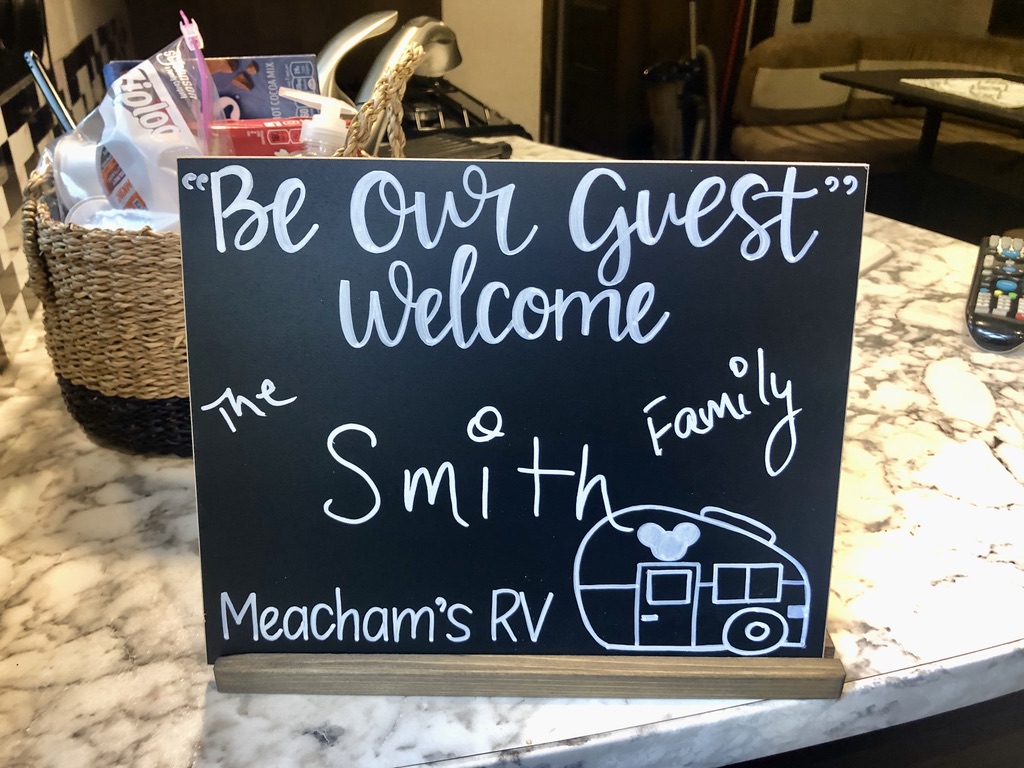 “Be Our Guest”
Welcome
The
Smith
Family
Meacham's RV
HOT COCOA MIX